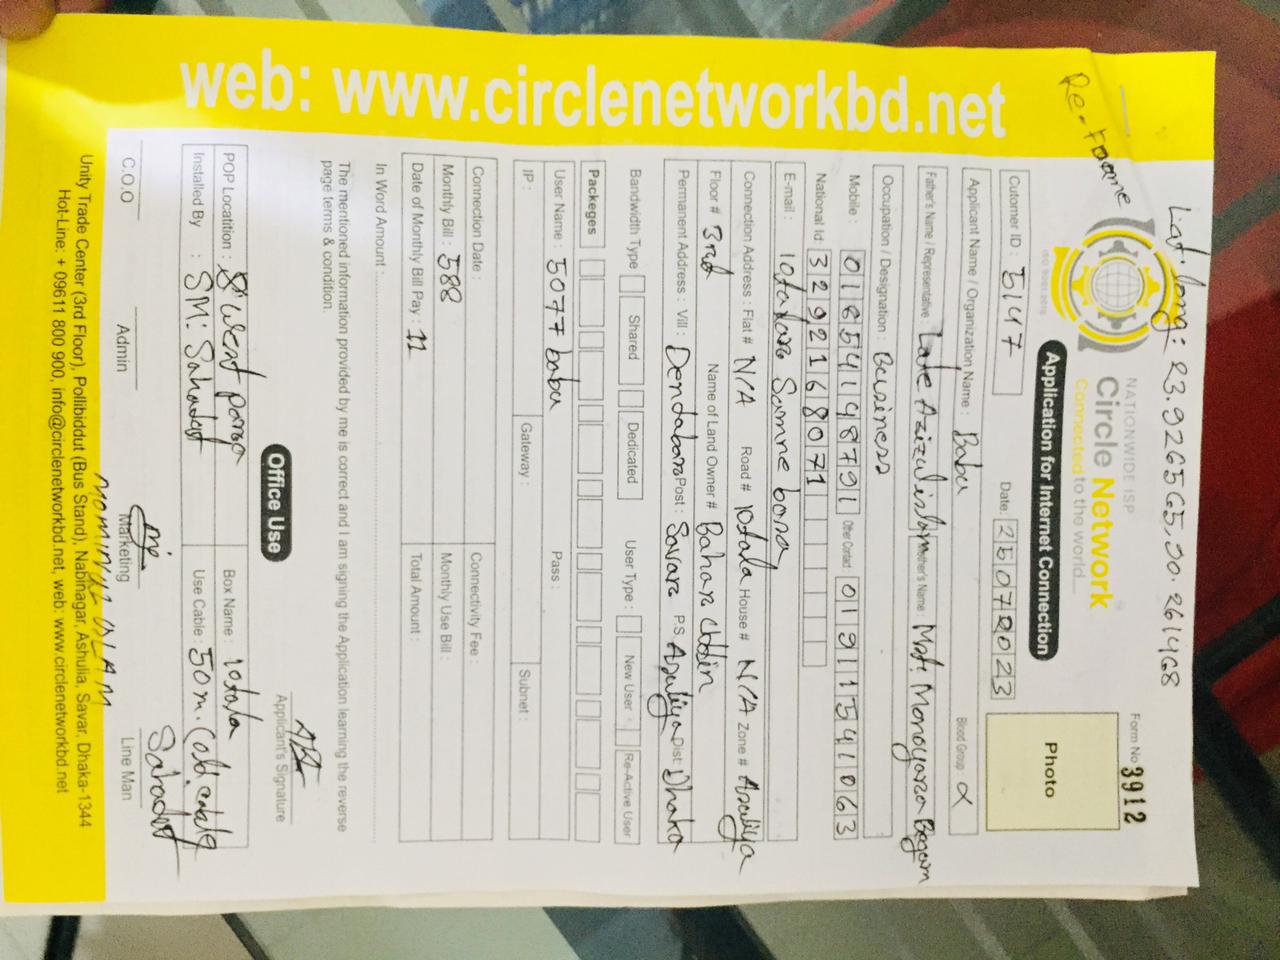 Lat. long: 23.926565,90.261468
Re-roame
NATIONWIDE ISP
Circle Network
Connected to the world....
ISO 9001:2015
Form No 3912
Application for Internet Connection
Photo
Cutomer ID : 5147
Date: 25072023
Applicant Name / Organization Name : Babu
Blood Group :
Father's Name / Representative : Late Azizul islam Mother's Name : Mst. Monoyara Begam
Occupation / Designation : Business
Mobile : 01854198791 Other Contact : 01911541063
National Id: 3292168071
E-mail : 10tatara Samne bona
Connection Address : Flat # N/A Road # 10tala House # N/A Zone # Asuliya
Floor # 3rd Name of Land Owner # Bahar uddin
Permanent Address : Vill : Dendabar Post : Savar P.S : Asuliya Dist: Dhaka
Bandwidth Type Shared Dedicated User Type : New User Re-Active User
Packeges
User Name : 5077 babu Pass :
IP : Gateway : Subnet :
Connection Date : Connectivity Fee :
Monthly Bill : 588 Monthly Use Bill :
Date of Monthly Bill Pay : 11 Total Amount :
In Word Amount :
The mentioned information provided by me is correct and I am signing the Application learning the reverse
page terms & condition.
Applicant's Signature
Office Use
POP Locatition : S' West para Box Name : 10tala
Installed By : SM: Sahadat Use Cable : 50m.
C.O.O Admin Marketing Line Man
Sahadat
MOMINUL ISLAM
Unity Trade Center (3rd Floor), Pollibiddut (Bus Stand), Nabinagar, Ashulia, Savar, Dhaka-1344
Hot-Line: + 09611 800 900, info@circlenetworkbd.net, web: www.circlenetworkbd.net
web: www.circlenetworkbd.net